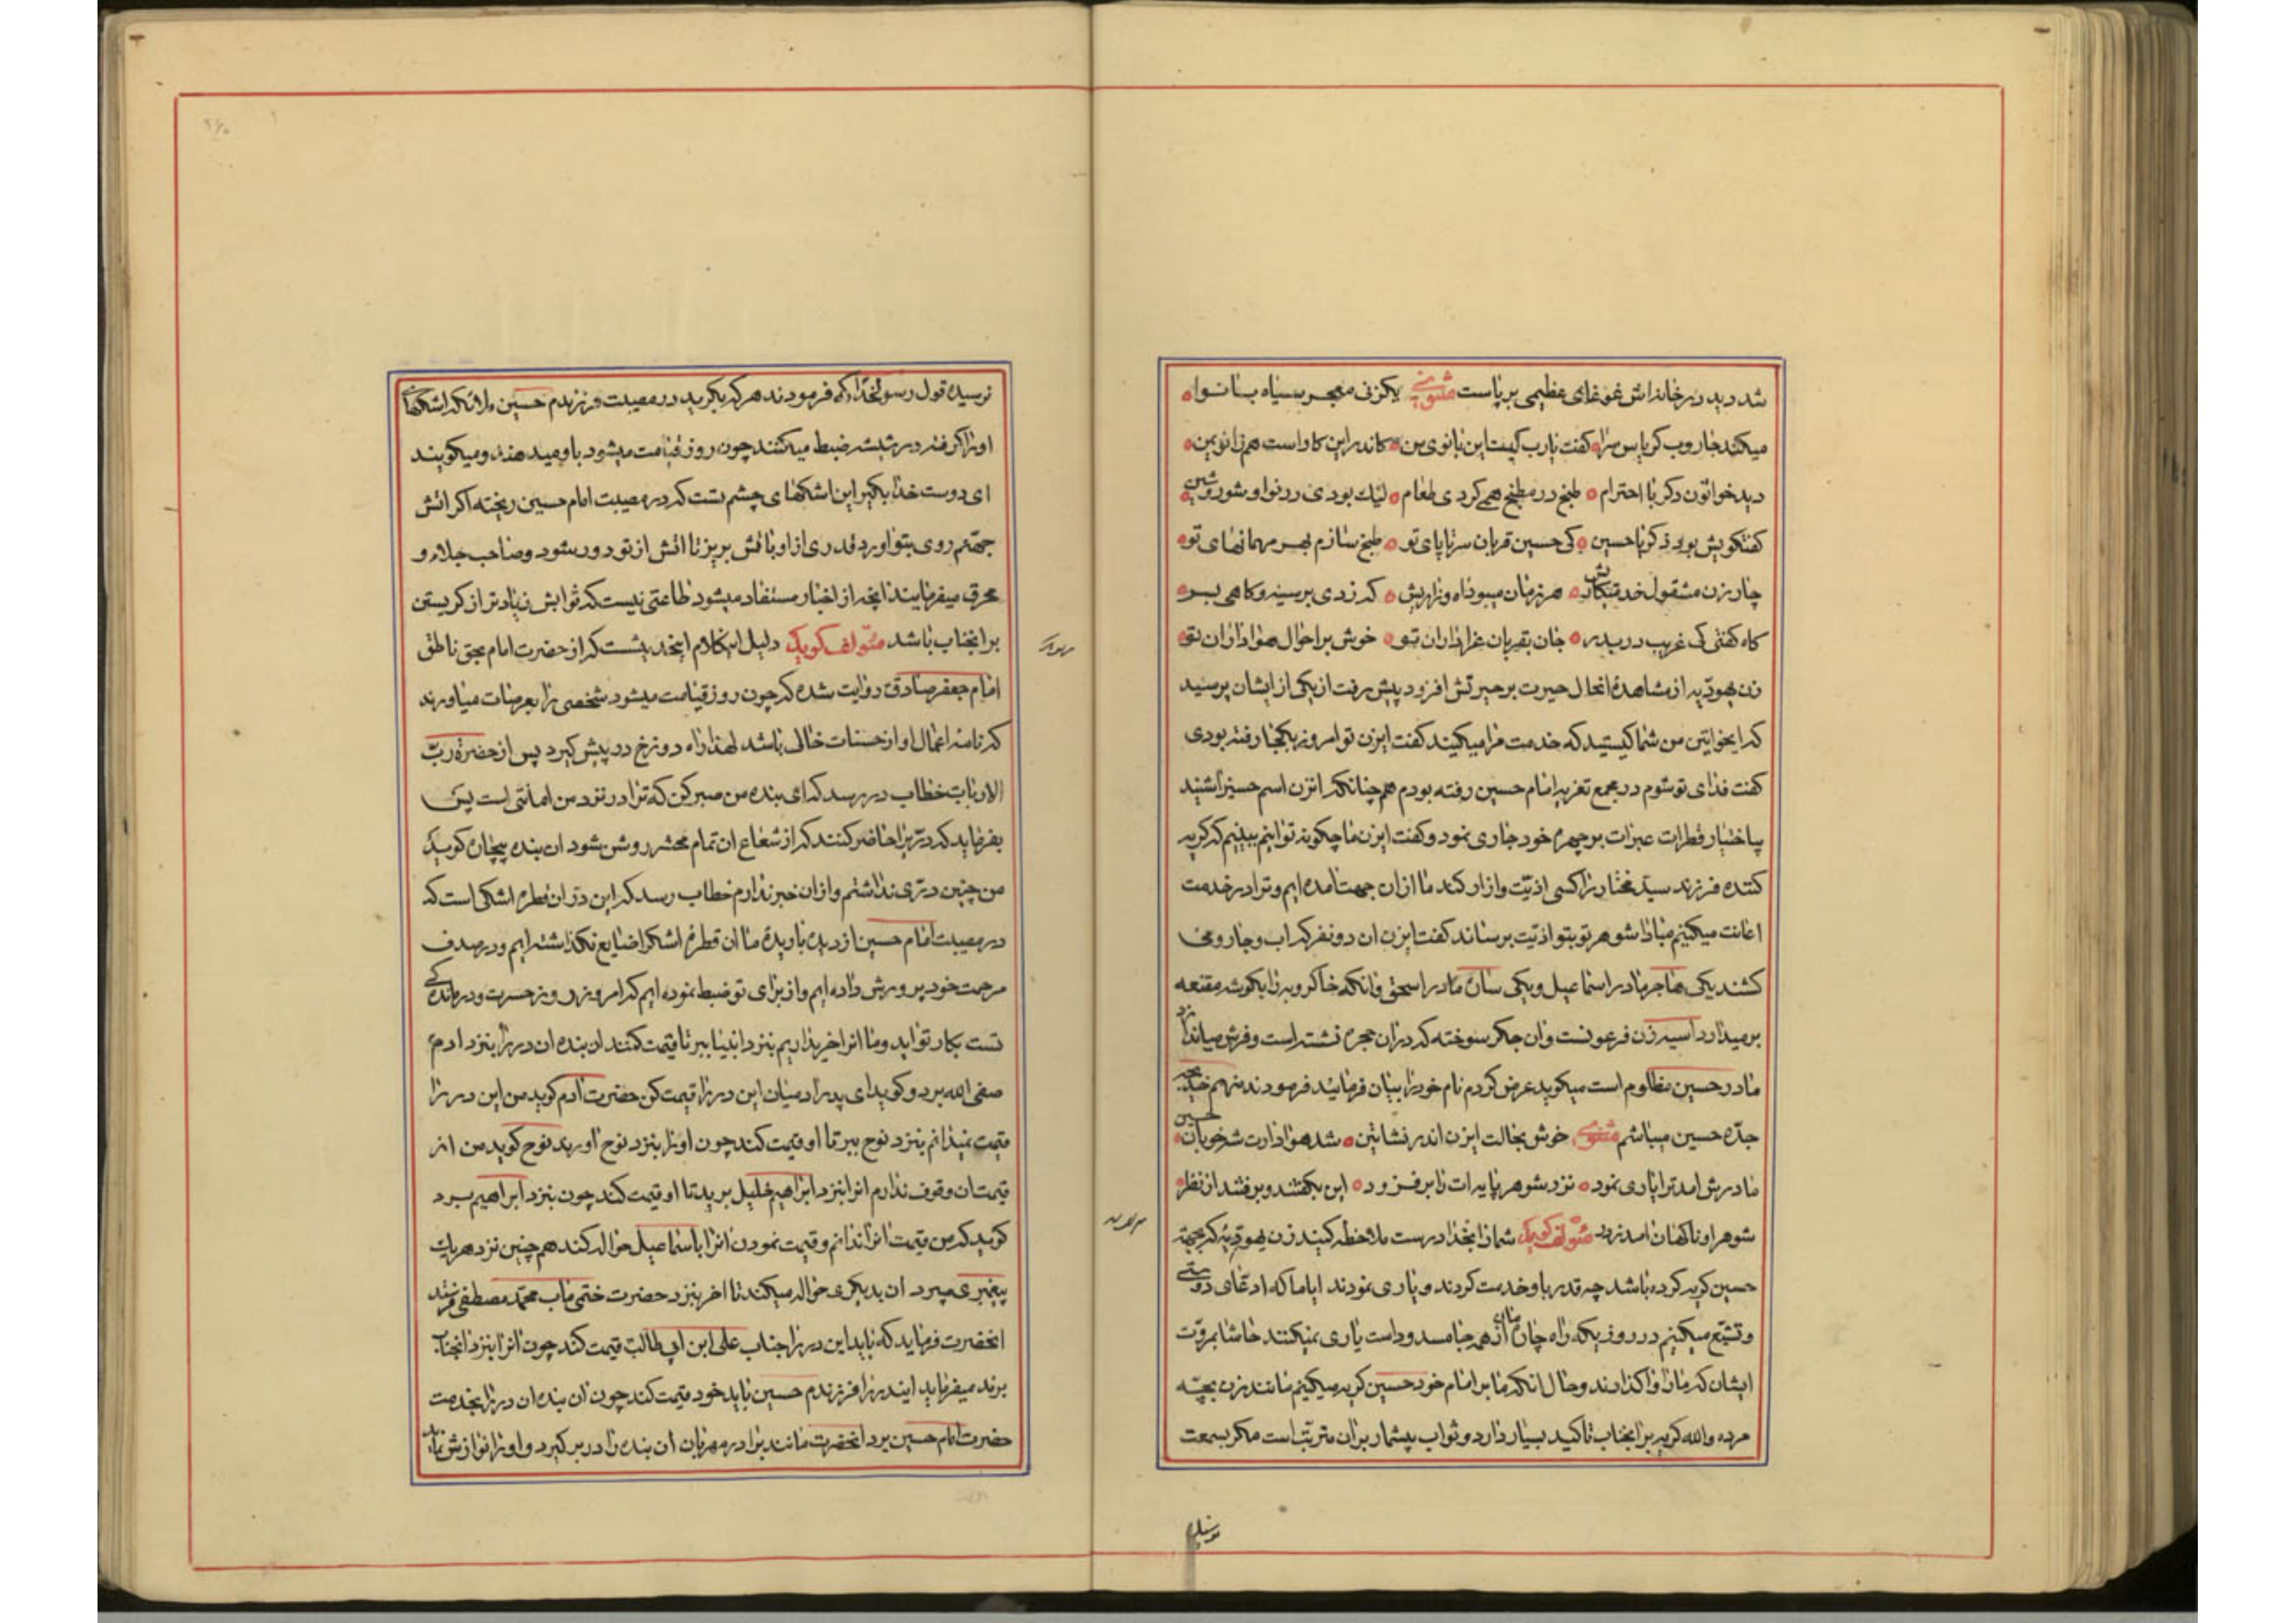 شد دید در خانه‌اش غوغای عظیمی برپاست مثنوی یکزنی معجر سیاه بانوا
میکند جاروب کریاس سرا کفت یارب کیست این بانوی من کاندر این کار است همزانوی من
دید خواتون دکر با احترام طبخ در مطبخ همی کردی طعام لیک بودی در نوا و شور و شین
کفتکویش بود ذکر یا حسین کی حسین قربان سرتاپای تو طبخ سازم بهر مهمانهای تو
چار زن مشقول خدمتکاریش هر زمان میبود اه و زاریش که زدی بر سینه و کاهی بسر
کاه کفتی کی غریب دربدر جان بقربان عزاداران تو خوش بر احوال هواداران تو
زن یهودیه از مشاهدهٔ انحال حیرت بر حیرتش افزود پیش رفت از یکی از ایشان پرسید
که ایخواتین من شما کیستید که خدمت مرا میکنید کفت ایزن تو امروز بکجا رفته بودی
کفت فدای تو شوم در مجمع تعزیه امام حسین رفته بودم همچنانکه انزن اسم حسین را شنید
بیاختیار قطرات عبرات بر چهره خود جاری نمود و کفت ایزن ما چکونه توانیم ببینیم که کریه
کننده فرزند سید مختار را کسی اذیت و ازار کند ما از ان جهت امده ایم و ترا در خدمت
اعانت میکنیم مبادا شوهر تو بتو اذیت برساند کفت ایزن ان دو نفر که اب و جاروب می
کشند یکی هاجر مادر اسماعیل و یکی ساره مادر اسحق و انکه خاکروبه را بکوشه مقنعه
برمیدارد اسیه زن فرعونست و ان جکر سوخته که در ان حجره نشسته است و فرش میاندازد
مادر حسین مظلوم است میکوید عرض کردم نام خود را بیان فرمایند فرمودند منهم خدیجه
جده حسین میباشم مثنوی خوش بحالت ایزن اندر نشاتین شد هوادارت شه خوبان حسین
مادرش امد ترا یاری نمود نزد شوهر پایه ات را برفزود این بکفتند و برفتند از نظر
شوهر او ناکهان امد ز در مئولف کوید شما را بخدا درست ملاحظه کنید زن یهودیه که بجهة
حسین کریه کرده باشد چه قدر باو خدمت کردند و یاری نمودند ایا ما که ادعای دوستی
و تشیع میکنیم در روزیکه راه چارهٔ مان از همه جا مسدود است یاری نمیکنند حاشا بمروت
ایشان که ما را واکذارند و حال انکه ما بر امام خود حسین کریه میکنیم مانند زن بچه
مرده والله کریه بر انجناب تاکید بسیار دارد و ثواب بیشمار بران مترتب است مکر بسمعت
نرسیده
نرسیده قول رسولخدا که فرمودند هر که بکرید در مصیبت فرزندم حسین ملائکه اشکهای
او را کرفته در شیشه ضبط میکنند چون روز قیامت میشود باو میدهند و میکویند
ای دوست خدا بکیر این اشکهای چشم تست که در مصیبت امام حسین ریخته اکر اتش
جهنم روی بتو اورد قدری از او باتش بریز تا اتش از تو دور شود و صاحب جلاء و
محرق میفرمایند انچه از اخبار مستفاد میشود طاعتی نیست که ثوابش زیادتر از کریستن
بر انجناب باشد مئولف کوید دلیل اینکلام اینحدیثست که از حضرت امام بحق ناطق
امام جعفر صادق روایت شده که چون روز قیامت میشود شخصی را بعرصات میاورند
که نامه اعمال او از حسنات خالی باشد لهذا راه دوزخ در پیش کیرد پس از حضرة رب
الارباب خطاب در رسد که ای بنده من صبر کن که ترا در نزد من امانتی است پس
بفرماید که دری را حاضر کنند که از شعاع ان تمام محشر روشن شود ان بنده بیچاره کوید
من چنین دری نداشتم و از ان خبر ندارم خطاب رسد که این در ان قطره اشکی است که
در مصیبت امام حسین از دیده باریدهٔ ما ان قطره اشک را ضایع نکذاشته ایم و در صدف
مرحمت خود پرورش داده ایم و از برای تو ضبط نموده ایم که امروز روز حسرت و درماندکی
تست بکار تو اید و ما انرا خریداریم بنزد انبیا ببر تا قیمت کنند ان بنده ان در را بنزد ادم
صفی الله برد و کوید ای پدر ادمیان این در را قیمت کن حضرت ادم کوید من این در را
قیمت نمیدانم بنزد نوح ببر تا او قیمت کند چون او را بنزد نوح اورید نوح کوید من از
قیمت ان وقوف ندارم انرا بنزد ابراهیم خلیل برید تا او قیمت کند چون بنزد ابراهیم برد
کوید که من قیمت انرا ندانم و قیمت نمودن انرا باسماعیل حواله کند همچنین نزد هر یک
پیغمبری میبرد ان بدیکری حواله میکند تا اخر بنزد حضرت ختمی ماب محمد مصطفی فرستند
انحضرت فرماید که باید این در را جناب علی ابن ابی طالب قیمت کند چون انرا بنزد انجناب
برند میفرماید ایندر را فرزندم حسین باید خود قیمت کند چون ان بنده ان در را بخدمت
حضرت امام حسین برد انحضرت مانند برادر مهربان ان بنده را در بر کیرد و او را نوازش نماید